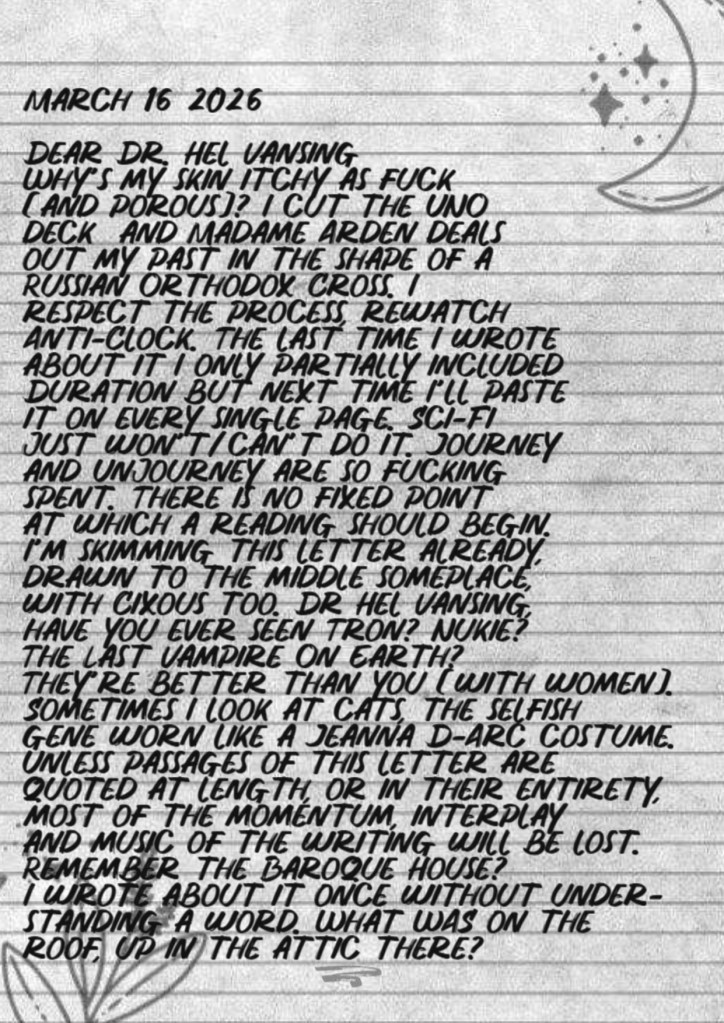 MARCH 16 2026
DEAR DR. HEL VANSING
WHY'S MY SKIN ITCHY AS FUCK
(AND POROUS)? I CUT THE UNO
DECK AND MADAME ARDEN DEALS
OUT MY PAST IN THE SHAPE OF A
RUSSIAN ORTHODOX CROSS. I
RESPECT THE PROCESS, REWATCH
ANTI-CLOCK. THE LAST TIME I WROTE
ABOUT IT I ONLY PARTIALLY INCLUDED
DURATION BUT NEXT TIME I'LL PASTE
IT ON EVERY SINGLE PAGE. SCI-FI
JUST WON'T/CAN'T DO IT. JOURNEY
AND UNJOURNEY ARE SO FUCKING
SPENT. THERE IS NO FIXED POINT
AT WHICH A READING SHOULD BEGIN.
I'M SKIMMING THIS LETTER ALREADY,
DRAWN TO THE MIDDLE SOMEPLACE,
WITH CIXOUS TOO. DR HEL VANSING,
HAVE YOU EVER SEEN TRON? NUKIE?
THE LAST VAMPIRE ON EARTH?
THEY'RE BETTER THAN YOU (WITH WOMEN).
SOMETIMES I LOOK AT CATS, THE SELFISH
GENE WORN LIKE A JEANNA D-ARC COSTUME.
UNLESS PASSAGES OF THIS LETTER ARE
QUOTED AT LENGTH, OR IN THEIR ENTIRETY,
MOST OF THE MOMENTUM, INTERPLAY
AND MUSIC OF THE WRITING WILL BE LOST.
REMEMBER THE BAROQUE HOUSE?
I WROTE ABOUT IT ONCE WITHOUT UNDER-
STANDING A WORD. WHAT WAS ON THE
ROOF, UP IN THE ATTIC THERE?